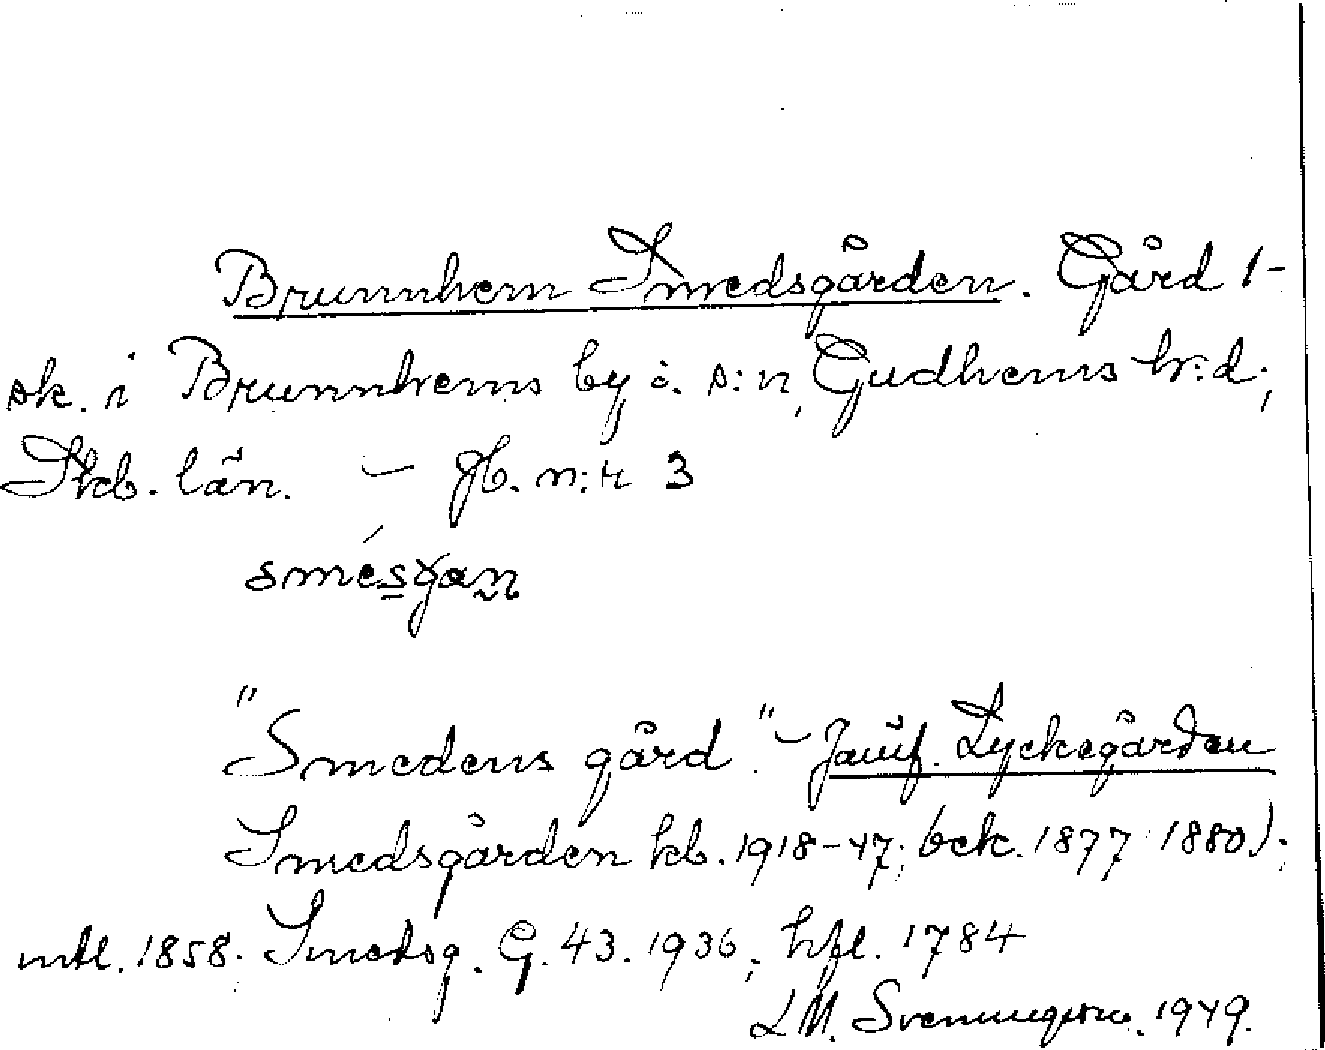 Brunnhem Smedsgården. Gård 1-
sk. i Brunnhems by o. s:n, Gudhems hr:d;
Skb. län. — jb. n:r 3
smésgan
"Smedens gård". — Jämf. Lycksgården
Smedsgården kb. 1918-47; bek. 1877 1880);
mtl. 1858. Smedsg. G. 43. 1936; hfl. 1784
LM. Svenungsson. 1949.